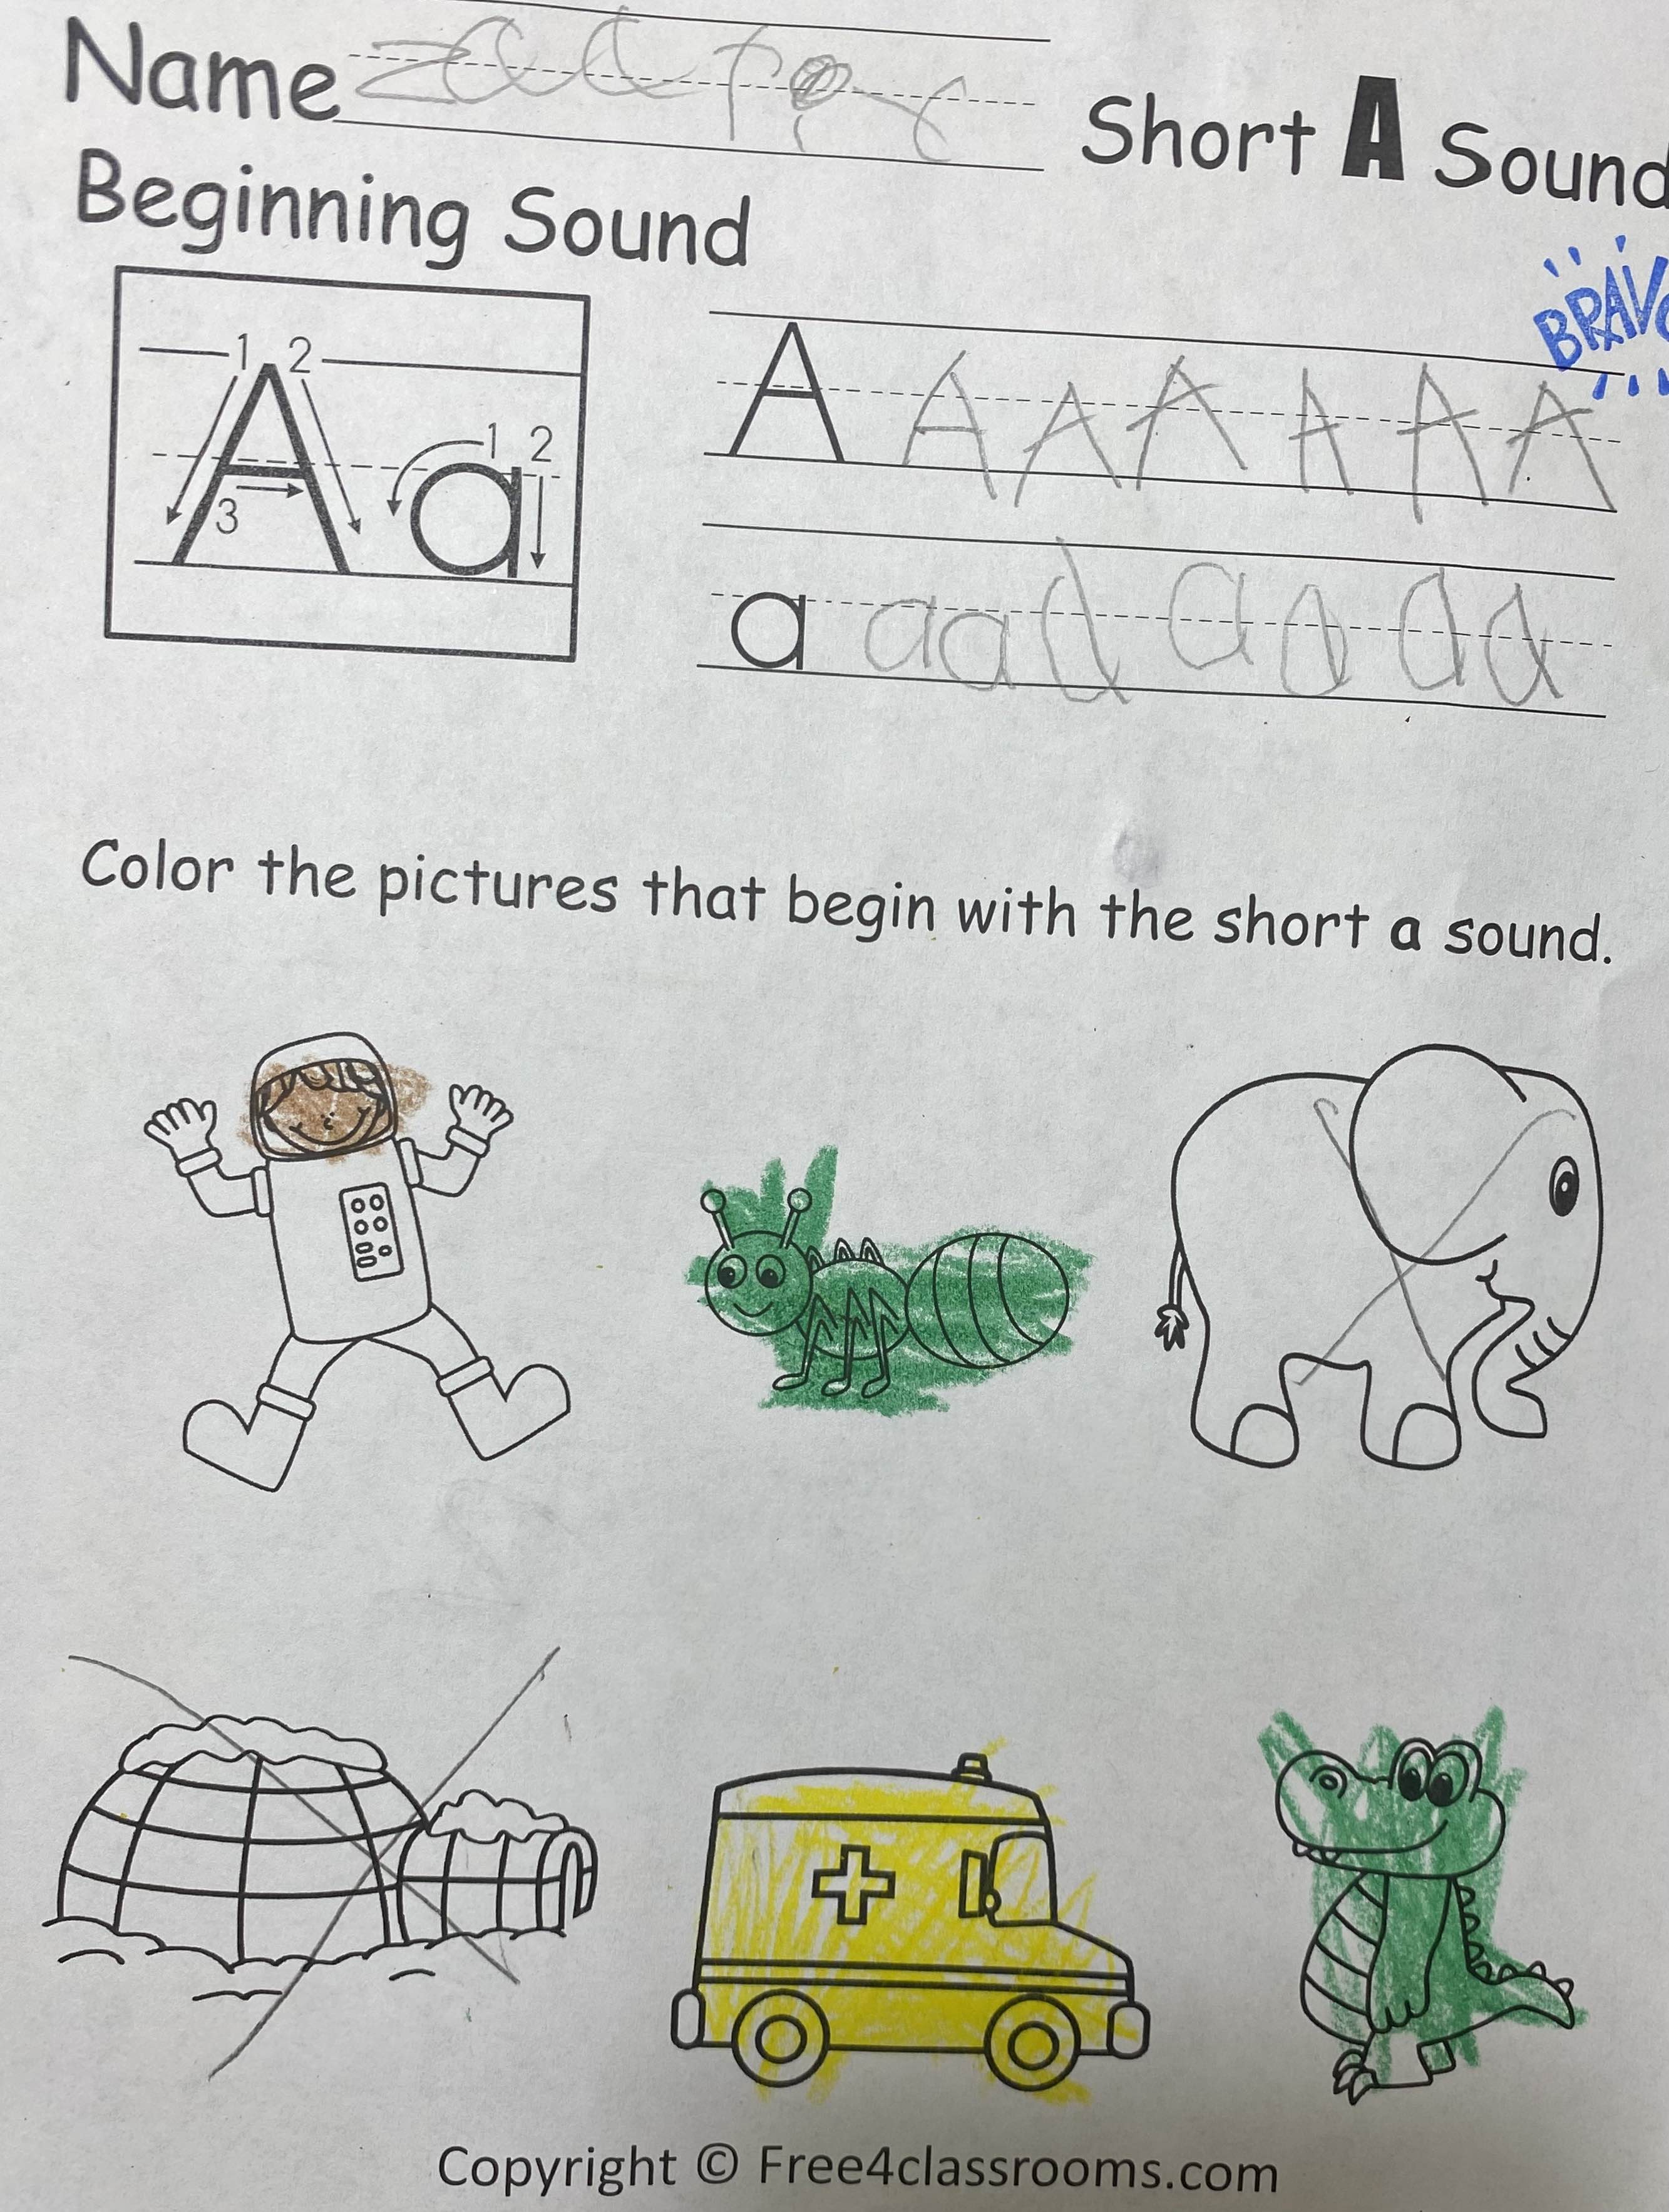 Name Short A Sound
Beginning Sound
BRAVO
1 2
A a
1 2
3
A A A A A A A
a a a a a a a a
Color the pictures that begin with the short a sound.
Copyright © Free4classrooms.com